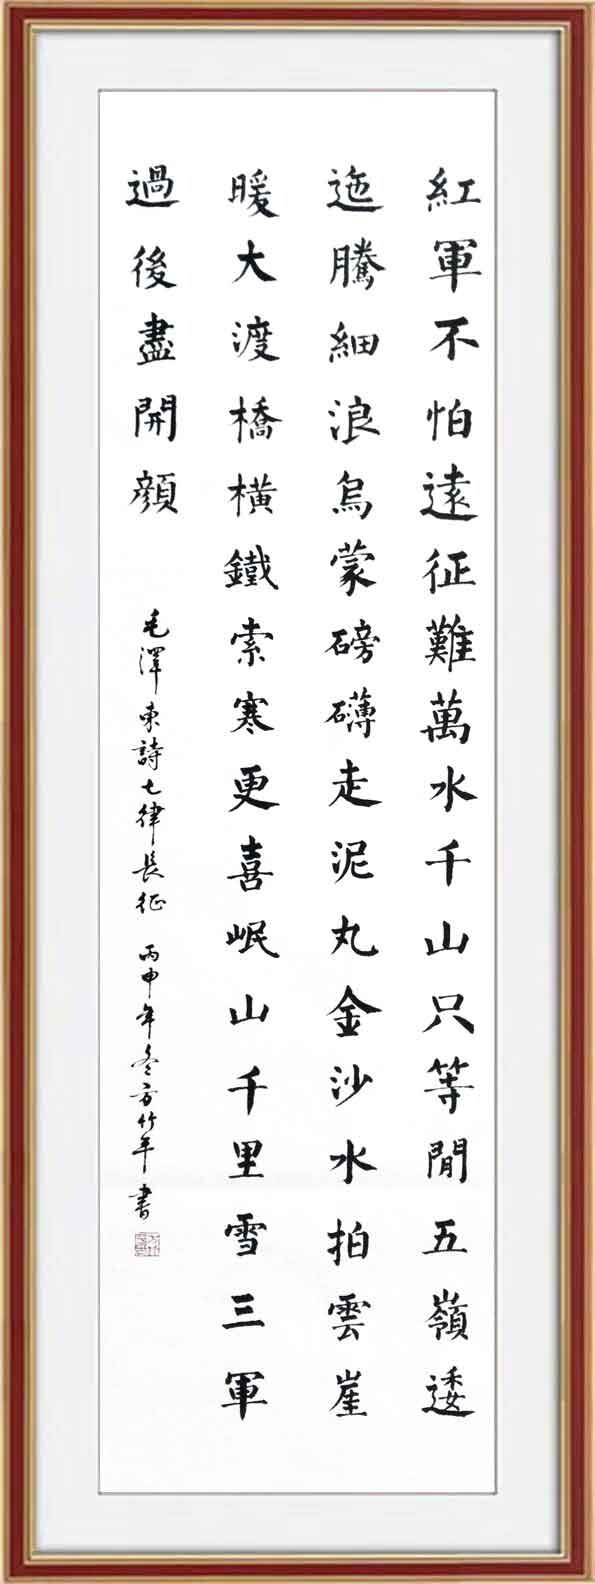 紅軍不怕遠征難萬水千山只等閒五嶺逶
迤騰細浪烏蒙磅礴走泥丸金沙水拍雲崖
暖大渡橋橫鐵索寒更喜岷山千里雪三軍
過後盡開顏
毛澤東詩七律長征 丙申年冬方竹平書